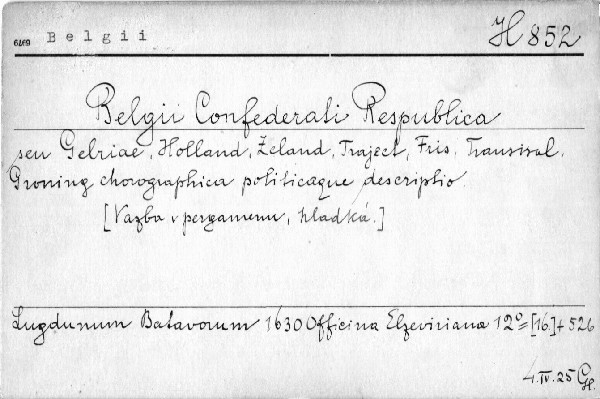 6379 Belgii H 852
Belgii Confederati Respublica
seu Gelriae, Holland, Zeland, Traject, Fris. Transisal.
Groning chorographica politicaque descriptio.
[Vazba v pergamenu, hladká.]
Lugdunum Batavorum 1630 Officina Elzeviriana 12º = [16] + 526
4. IV. 25